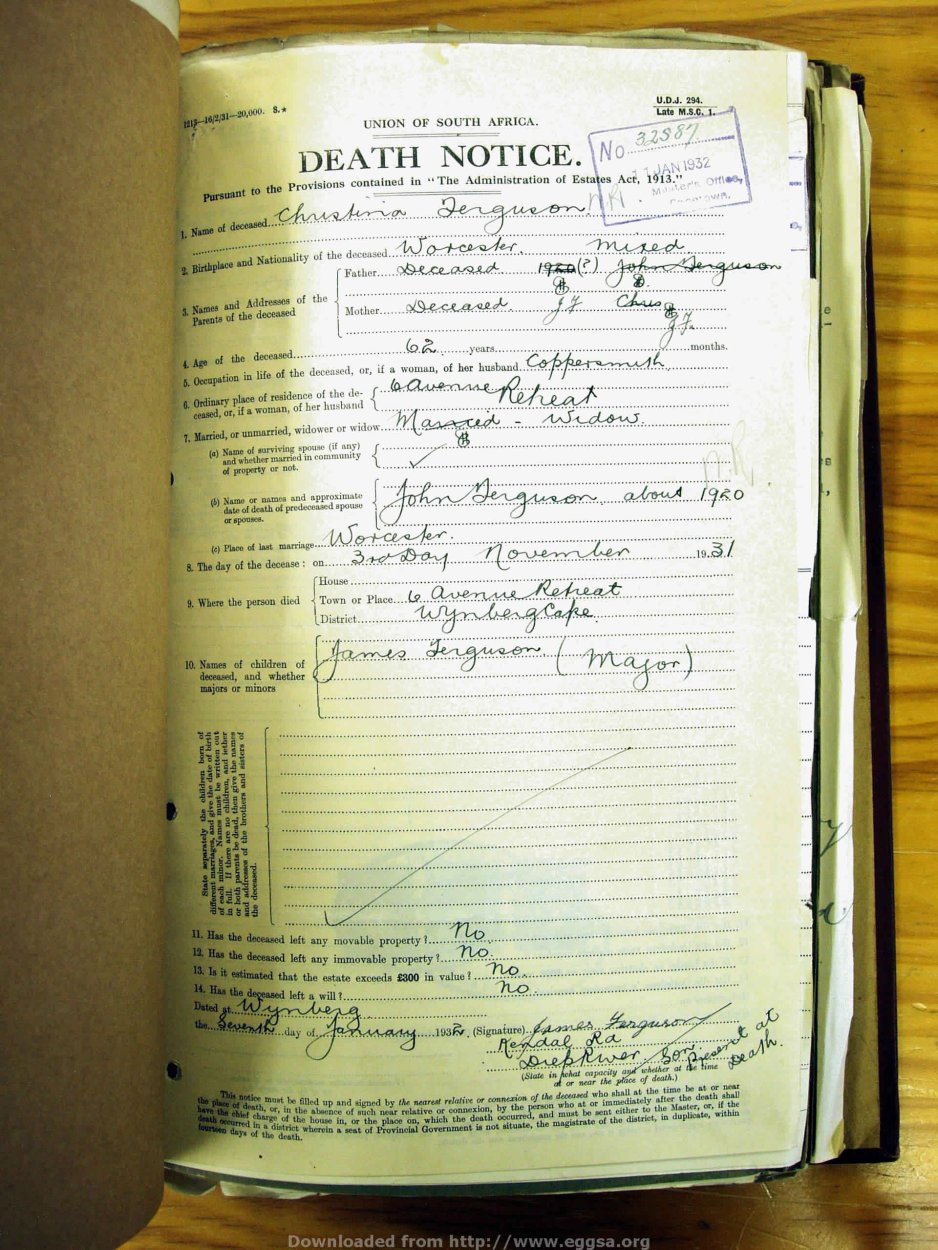 1213—16/2/31—20,000. S.*
U.D.J. 294.
Late M.S.C. 1.
UNION OF SOUTH AFRICA.
No 32587
11 JAN 1932
Master's Office,
DEATH NOTICE.
Pursuant to the Provisions contained in "The Administration of Estates Act, 1913."
1. Name of deceased Christina Ferguson
2. Birthplace and Nationality of the deceased Worcester. mixed
3. Names and Addresses of the Parents of the deceased
Father Deceased 1920 (?) John Ferguson
Mother Deceased. Chris
4. Age of the deceased 62 years months.
5. Occupation in life of the deceased, or, if a woman, of her husband Coppersmith
6. Ordinary place of residence of the deceased, or, if a woman, of her husband
6 avenue Retreat
7. Married, or unmarried, widower or widow Married - Widow.
(a) Name of surviving spouse (if any)
and whether married in community
of property or not.
(b) Name or names and approximate
date of death of predeceased spouse
or spouses.
John Ferguson about 1920
(c) Place of last marriage Worcester.
8. The day of the decease: on 3rd Day November 1931
9. Where the person died
House
Town or Place 6 avenue Retreat
District Wynberg Cape
10. Names of children of
deceased, and whether
majors or minors
James Ferguson (Major)
State separately the children born of
different marriages, and give the date of birth
of each minor. Names must be written out
in full. If there are no children, and iether
or both parents be dead, then give the names
and addresses of the brothers and sisters of
the deceased.
11. Has the deceased left any movable property? No
12. Has the deceased left any immovable property? no
13. Is it estimated that the estate exceeds £300 in value? no
14. Has the deceased left a will? no.
Dated at Wynberg
the Seventh day of January 1932. (Signature) James Ferguson
Kendal Rd
Diep River Son. Present at Death.
(State in what capacity and whether at the time
at or near the place of death.)
This notice must be filled up and signed by the nearest relative or connexion of the deceased who shall at the time be at or near
the place of death, or, in the absence of such near relative or connexion, by the person who at or immediately after the death shall
have the chief charge of the house in, or the place on, which the death occurred, and must be sent either to the Master, or, if the
death occurred in a district wherein a seat of Provincial Government is not situate, the magistrate of the district, in duplicate, within
fourteen days of the death.
Downloaded from http://www.eggsa.org